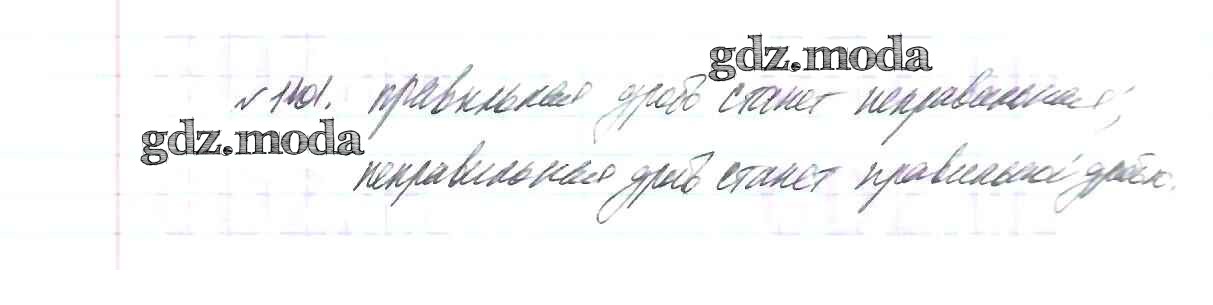 gdz.moda
№ 1101. правильная дробь станет неправильная,
gdz.moda
неправильная дробь станет правильной дробью.